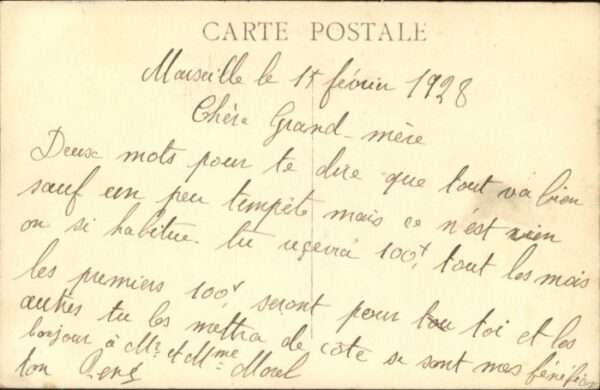 CARTE POSTALE
Marseille le 1r février 1928
Chère Grand-mère
Deux mots pour te dire que tout va bien
sauf un peu tempête mais ce n'est rien
on si habitue. tu recevra 100f tout les mois
les premiers 100f seront pour toi et les
autres tu les mettra de côté se sont mes
bonjour à Mr et Mme Morel
ton René